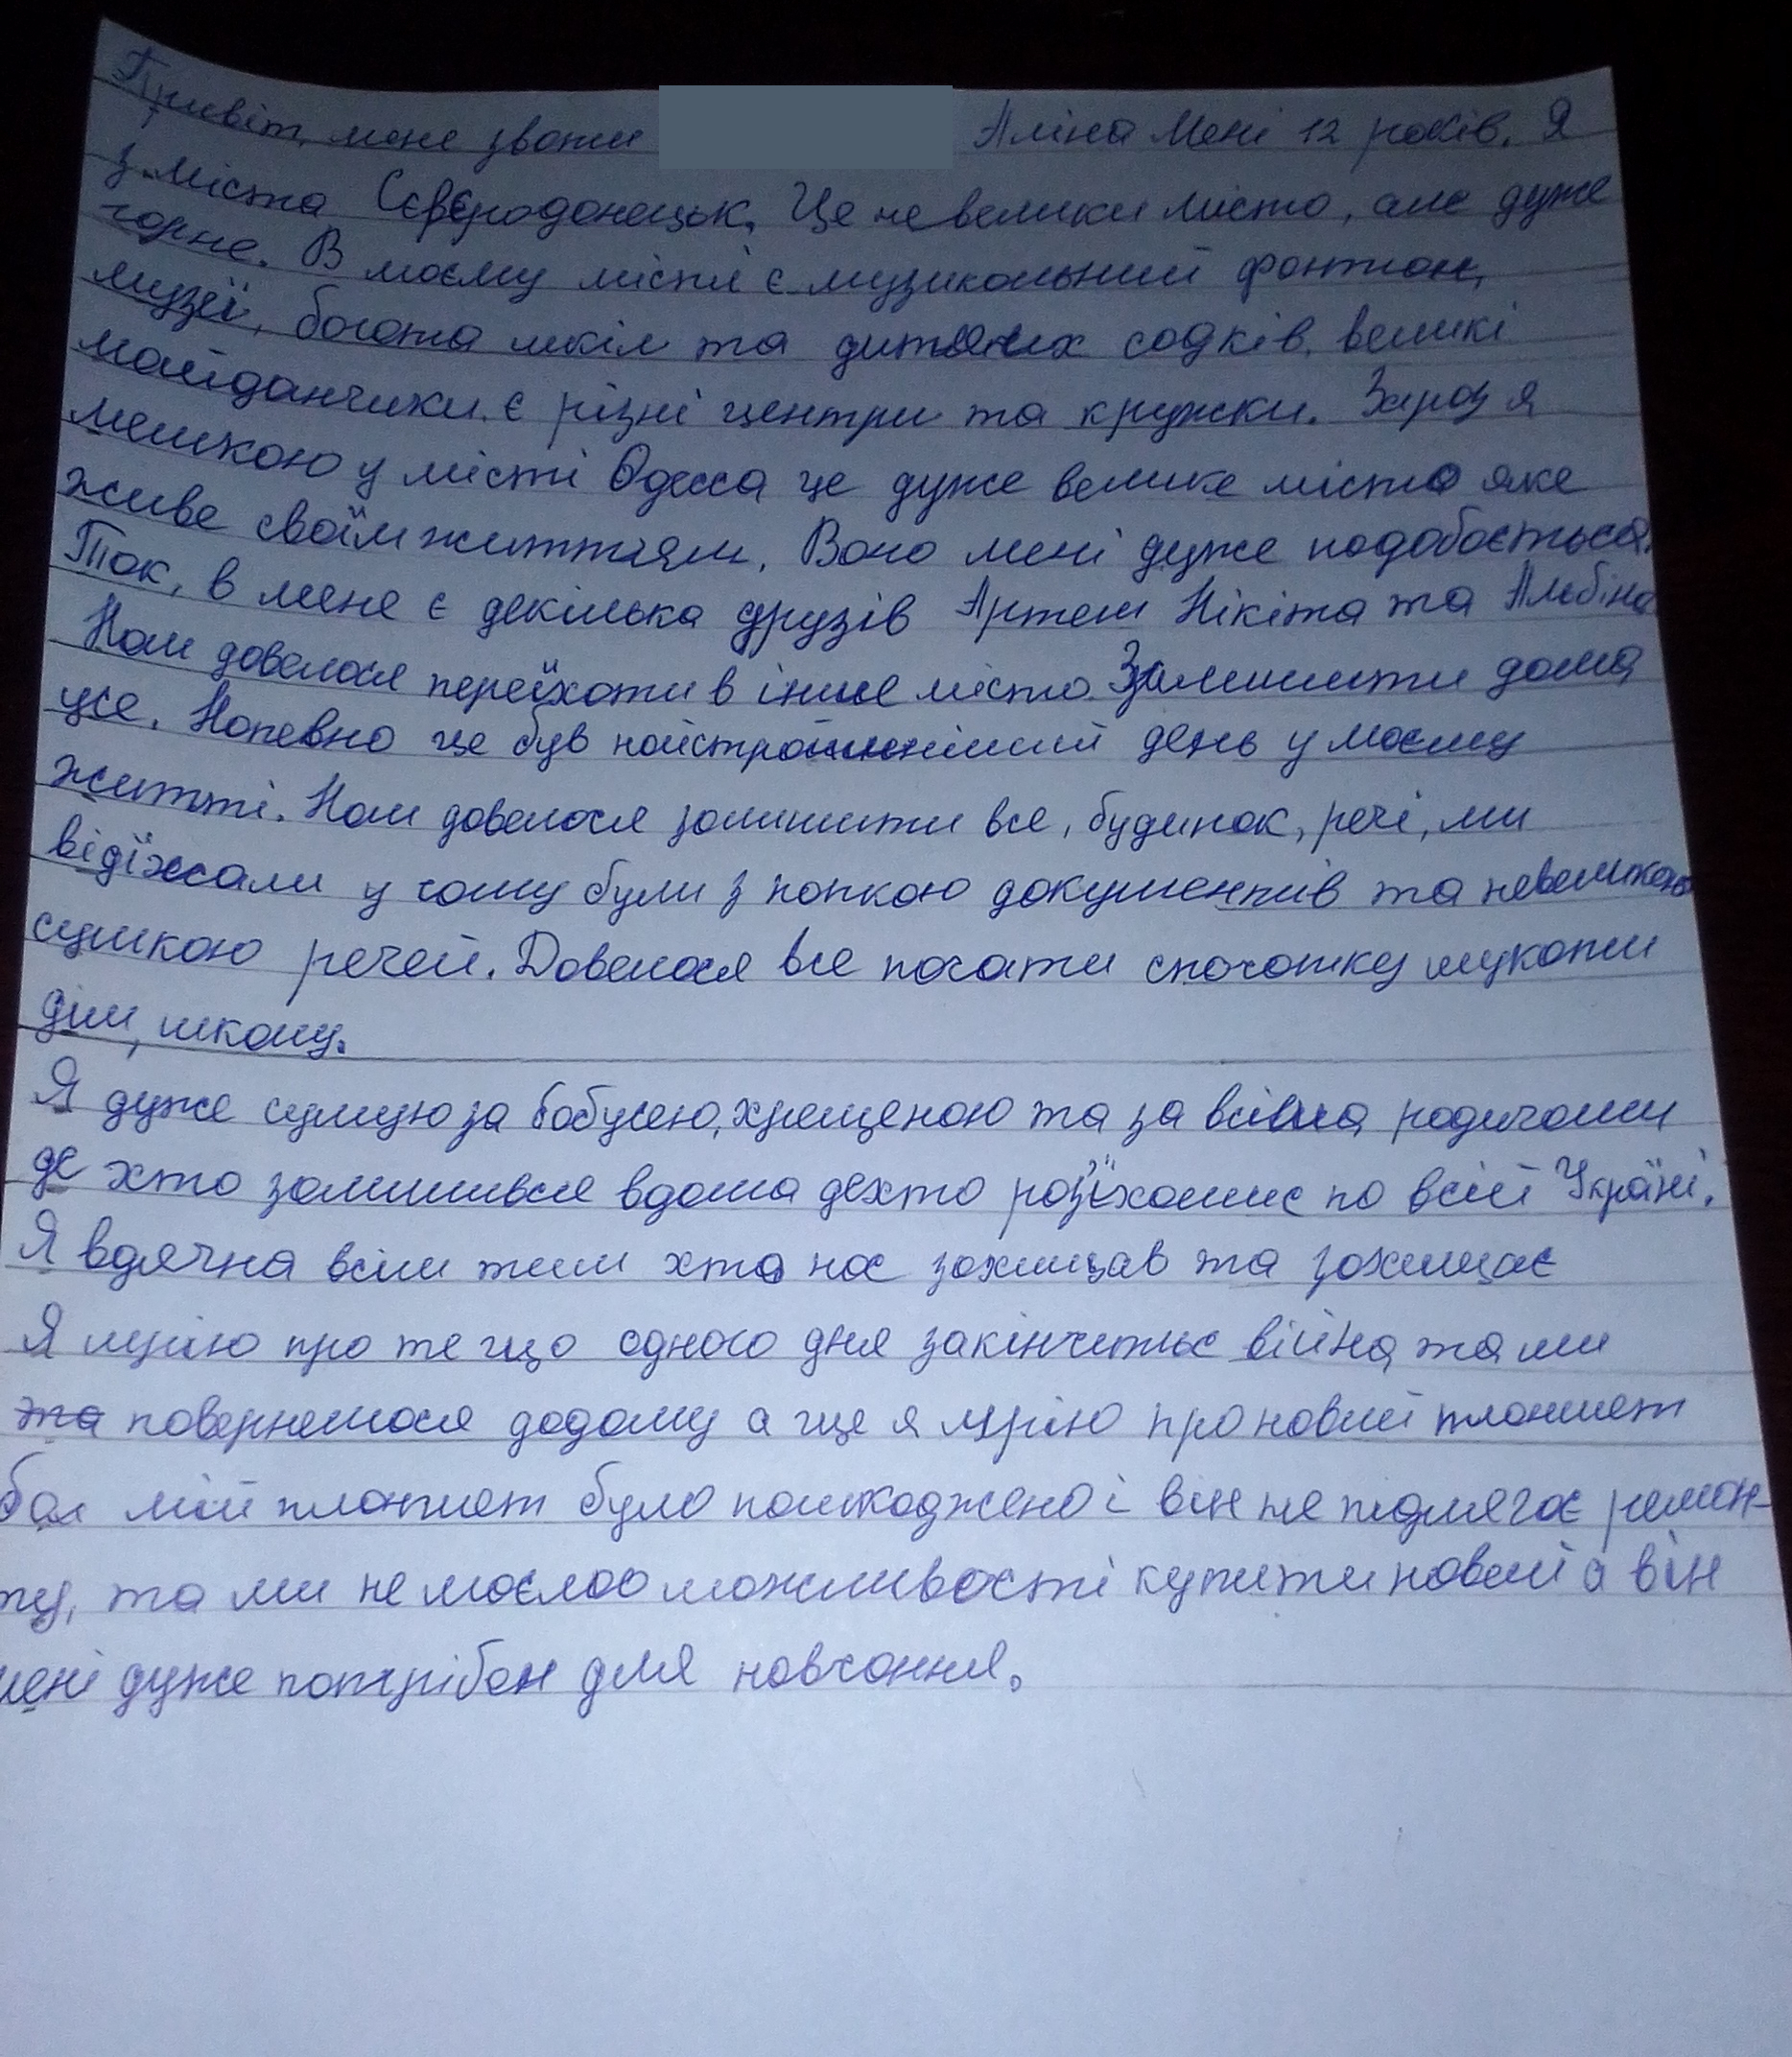 Привіт, мене звати Аліна Мені 12 років. Я
з міста Сєвєродонецьк, Це не велики місто, але дуже
гарне. В моєму місті є музикальний фонтан,
музеї, багато шкіл та дитячих садків, великі
майданчики. є різні центри та кружки. Зараз я
мешкаю у місті Одесса це дуже велике місто яке
живе своїм життям. Воно мені дуже подобається.
Так, в мене є декілька друзів Артем Нікіта та Альбіна
Нам довелося переїхати в інше місто. Залишити дома
усе. Напевно це був найстрашніший день у моєму
житті. Нам довелося залишити все, будинок, речі, ми
відїжали у чому були з папкою документів та невеликою
сумкою речей. Довелося все почати спочатку шукати
дім, школу.
Я дуже сумую за бабусею, хрещеною та за всіма родичами
де хто залишився вдома дехто роз'їхались по всій Україні.
Я вдячна всім тим хто нас захищав та захищає
Я мрію про те що одного дня закінчиться війна та ми
та повернемося додому а ще я мрію про новий планшет
бо мій планшет було пошкоджено і він не підлягає ремон-
ту, та ми не маємо можливості купити новий а він
мені дуже потрібен для навчання.